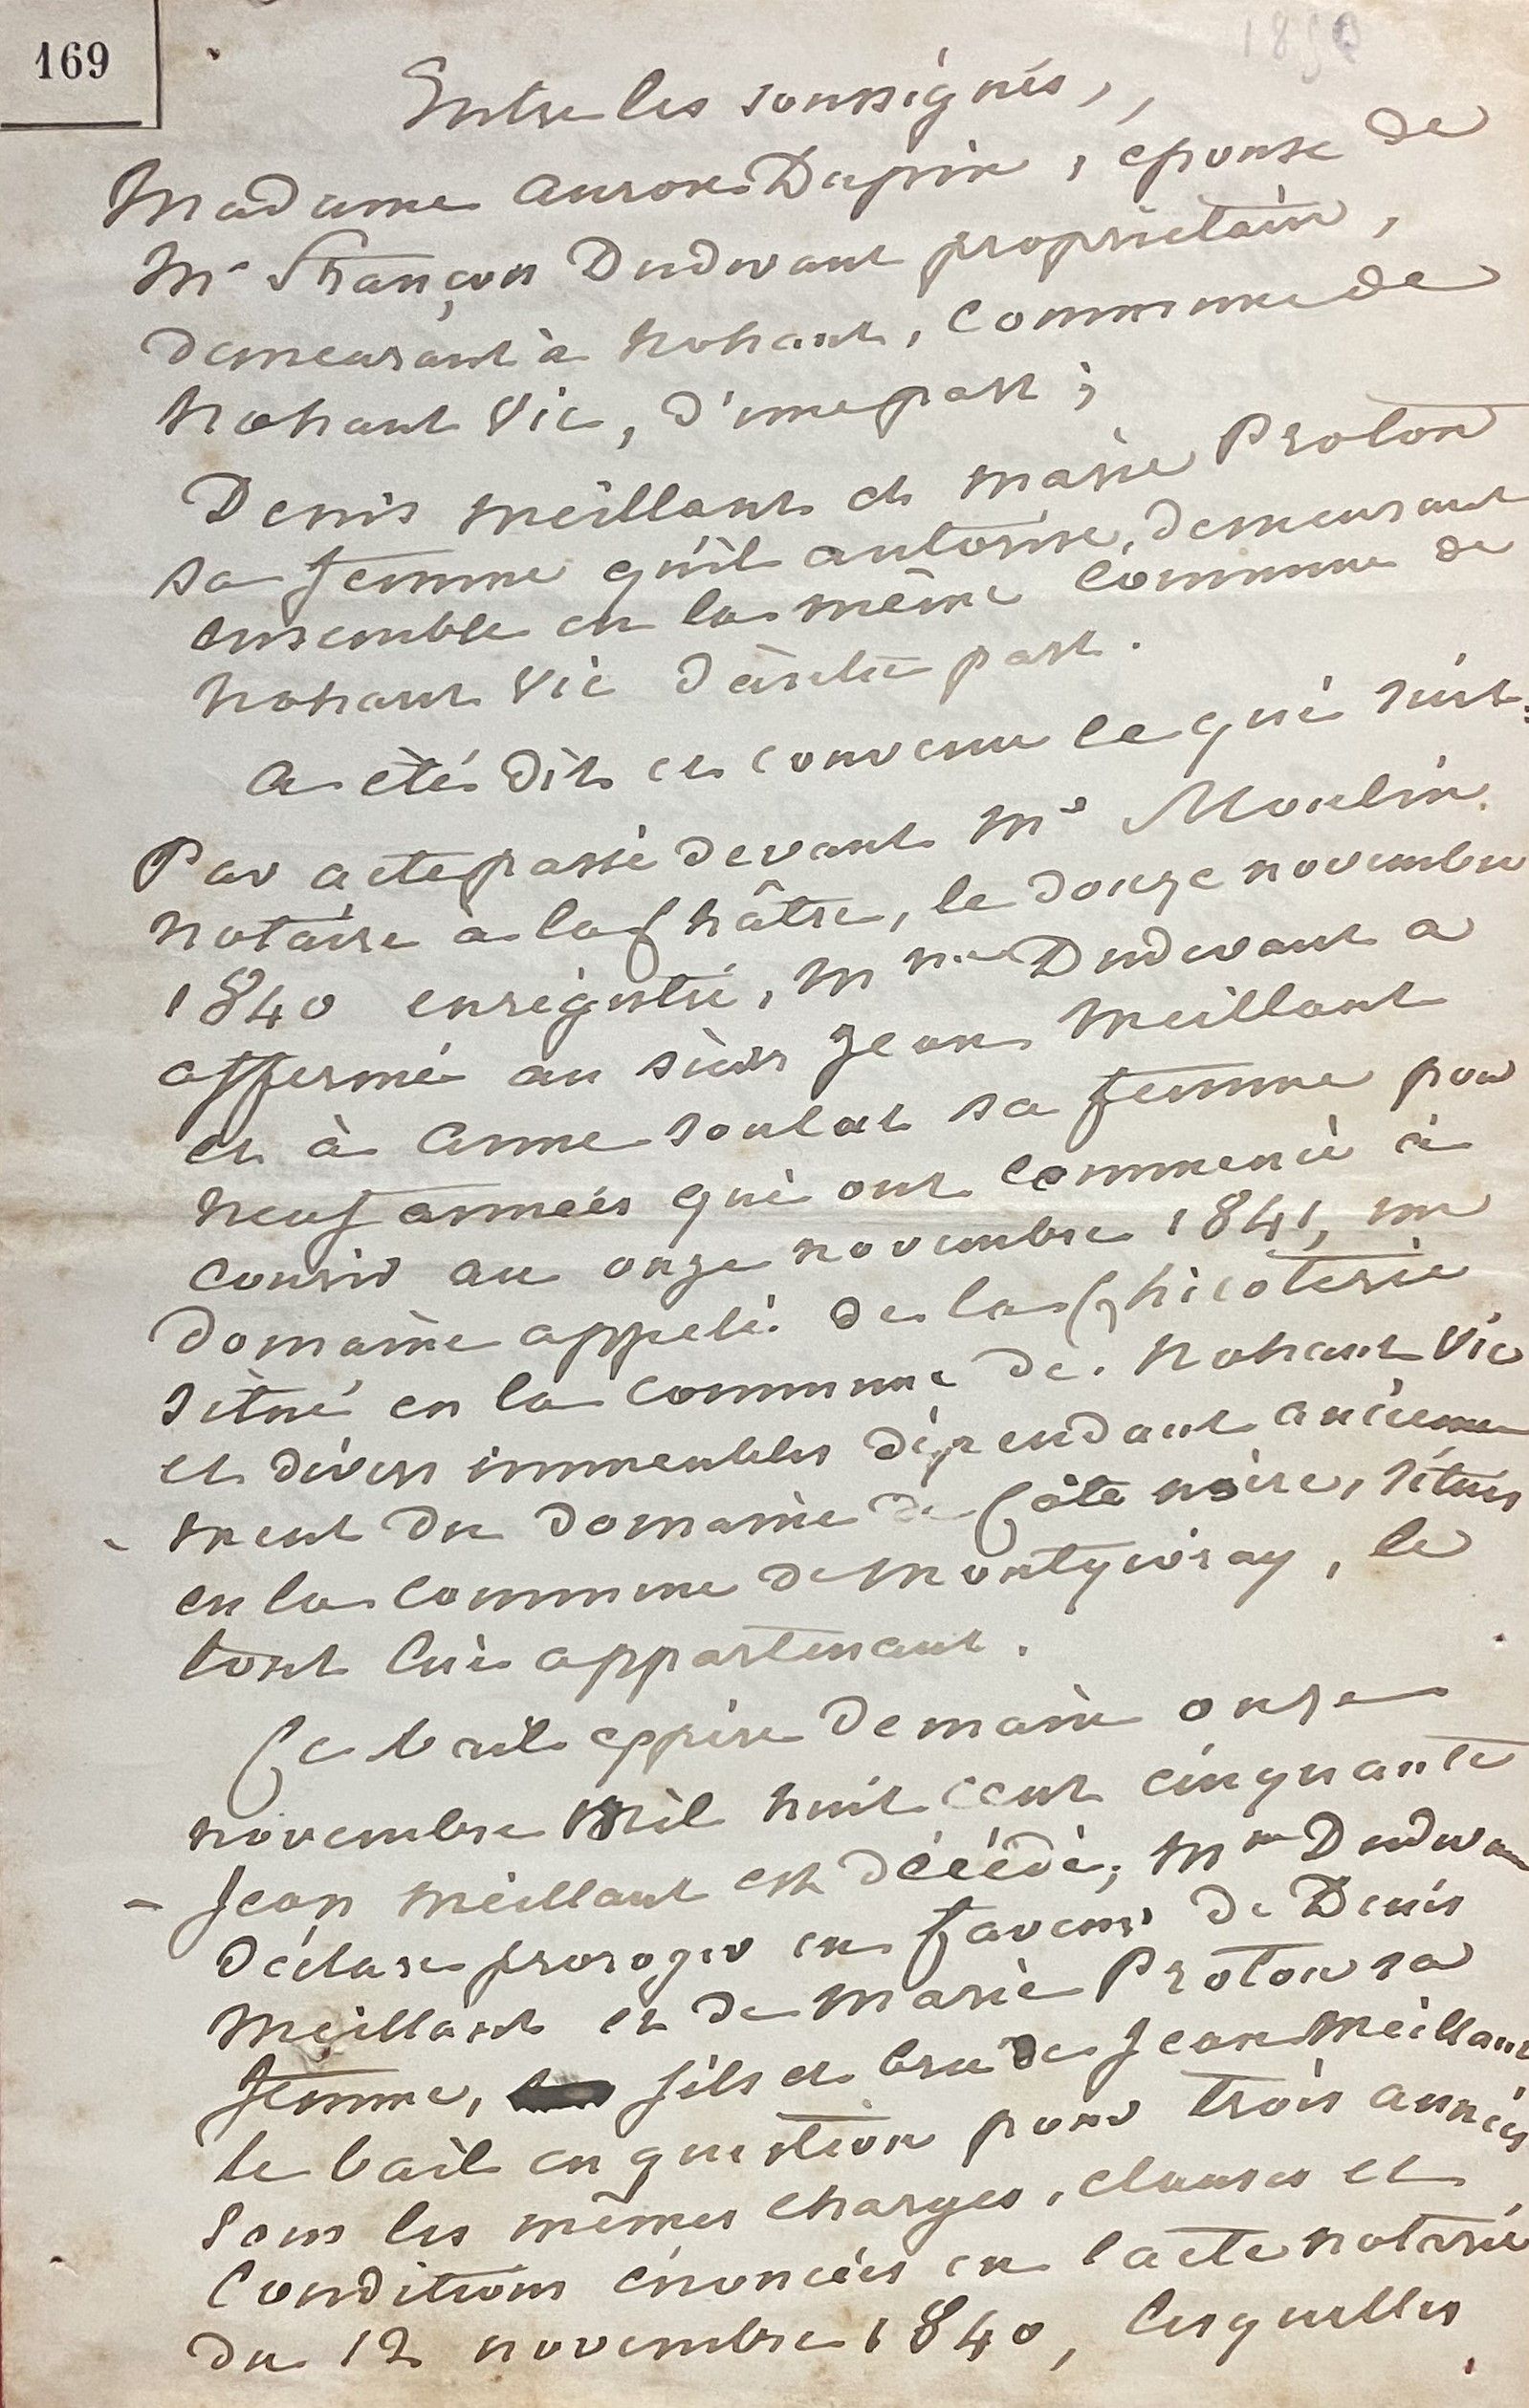 169
1850
Entre les soussignés,
Madame aurore Dupin, épouse de
Mr François Dudevant propriétaire,
demeurant à Nohant, Commune de
Nohant Vic, d'une part ;
Denis Meillant et Marie Proton
sa femme qu'il autorise, demeurant
ensemble en la même Commune de
Nohant Vic d'autre part.
A été dit et convenu ce qui suit :
Par acte passé devant Me Moulin
notaire à la Châtre, le douze novembre
1840 enregistré, Mme Dudevant a
affermé au sieur Jean Meillant
et à Anne Soulat sa femme pour
neuf années qui ont commencé à
courir au onze novembre 1841, un
domaine appelé de la Chicoterie
situé en la commune de Nohant Vic
et divers immeubles dépendant ancienne
- ment du domaine de Côte noire, situés
en la commune de Montgivray, le
tout lui appartenant.
Ce bail expire demain onze
novembre mil huit cent cinquante
- Jean Meillant est décédé; Mme Dudevant
déclare proroger en faveur de Denis
Meillant et de Marie Proton sa
femme, fils et bru de Jean Meillant
le bail en question pour trois années
sous les mêmes charges, clauses et
conditions énoncées en l'acte notarié
du 12 novembre 1840, lesquelles